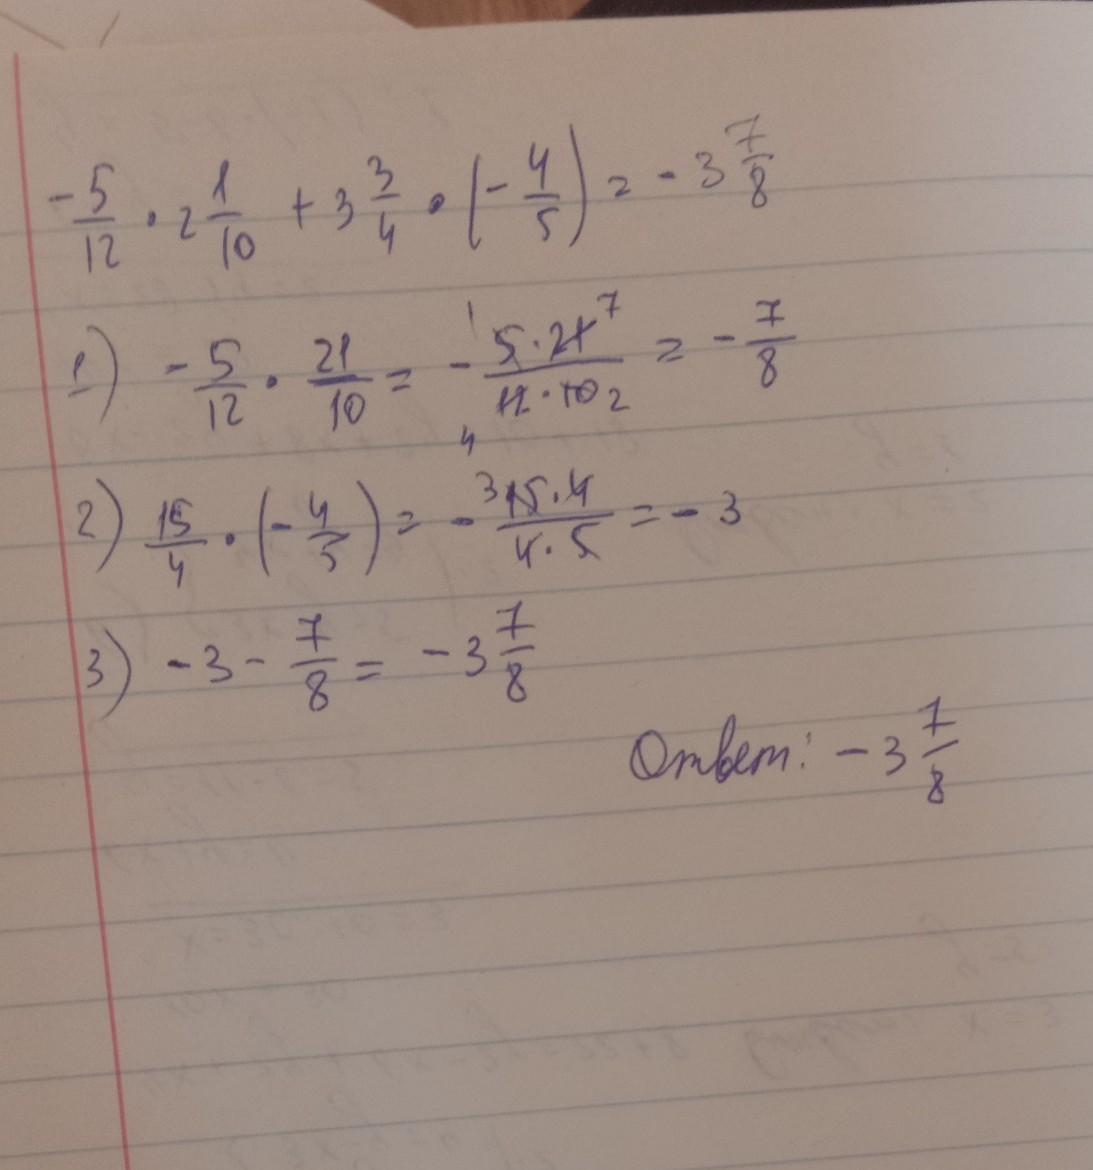 -5/12 · 2 1/10 + 3 3/4 · (- 4/5) = - 3 7/8
1) - 5/12 · 21/10 = - 5 · 21/12 · 10 = - 7/8
2) 15/4 · (- 4/5) = - 15 · 4/4 · 5 = - 3
3) - 3 - 7/8 = - 3 7/8
Ответ: - 3 7/8